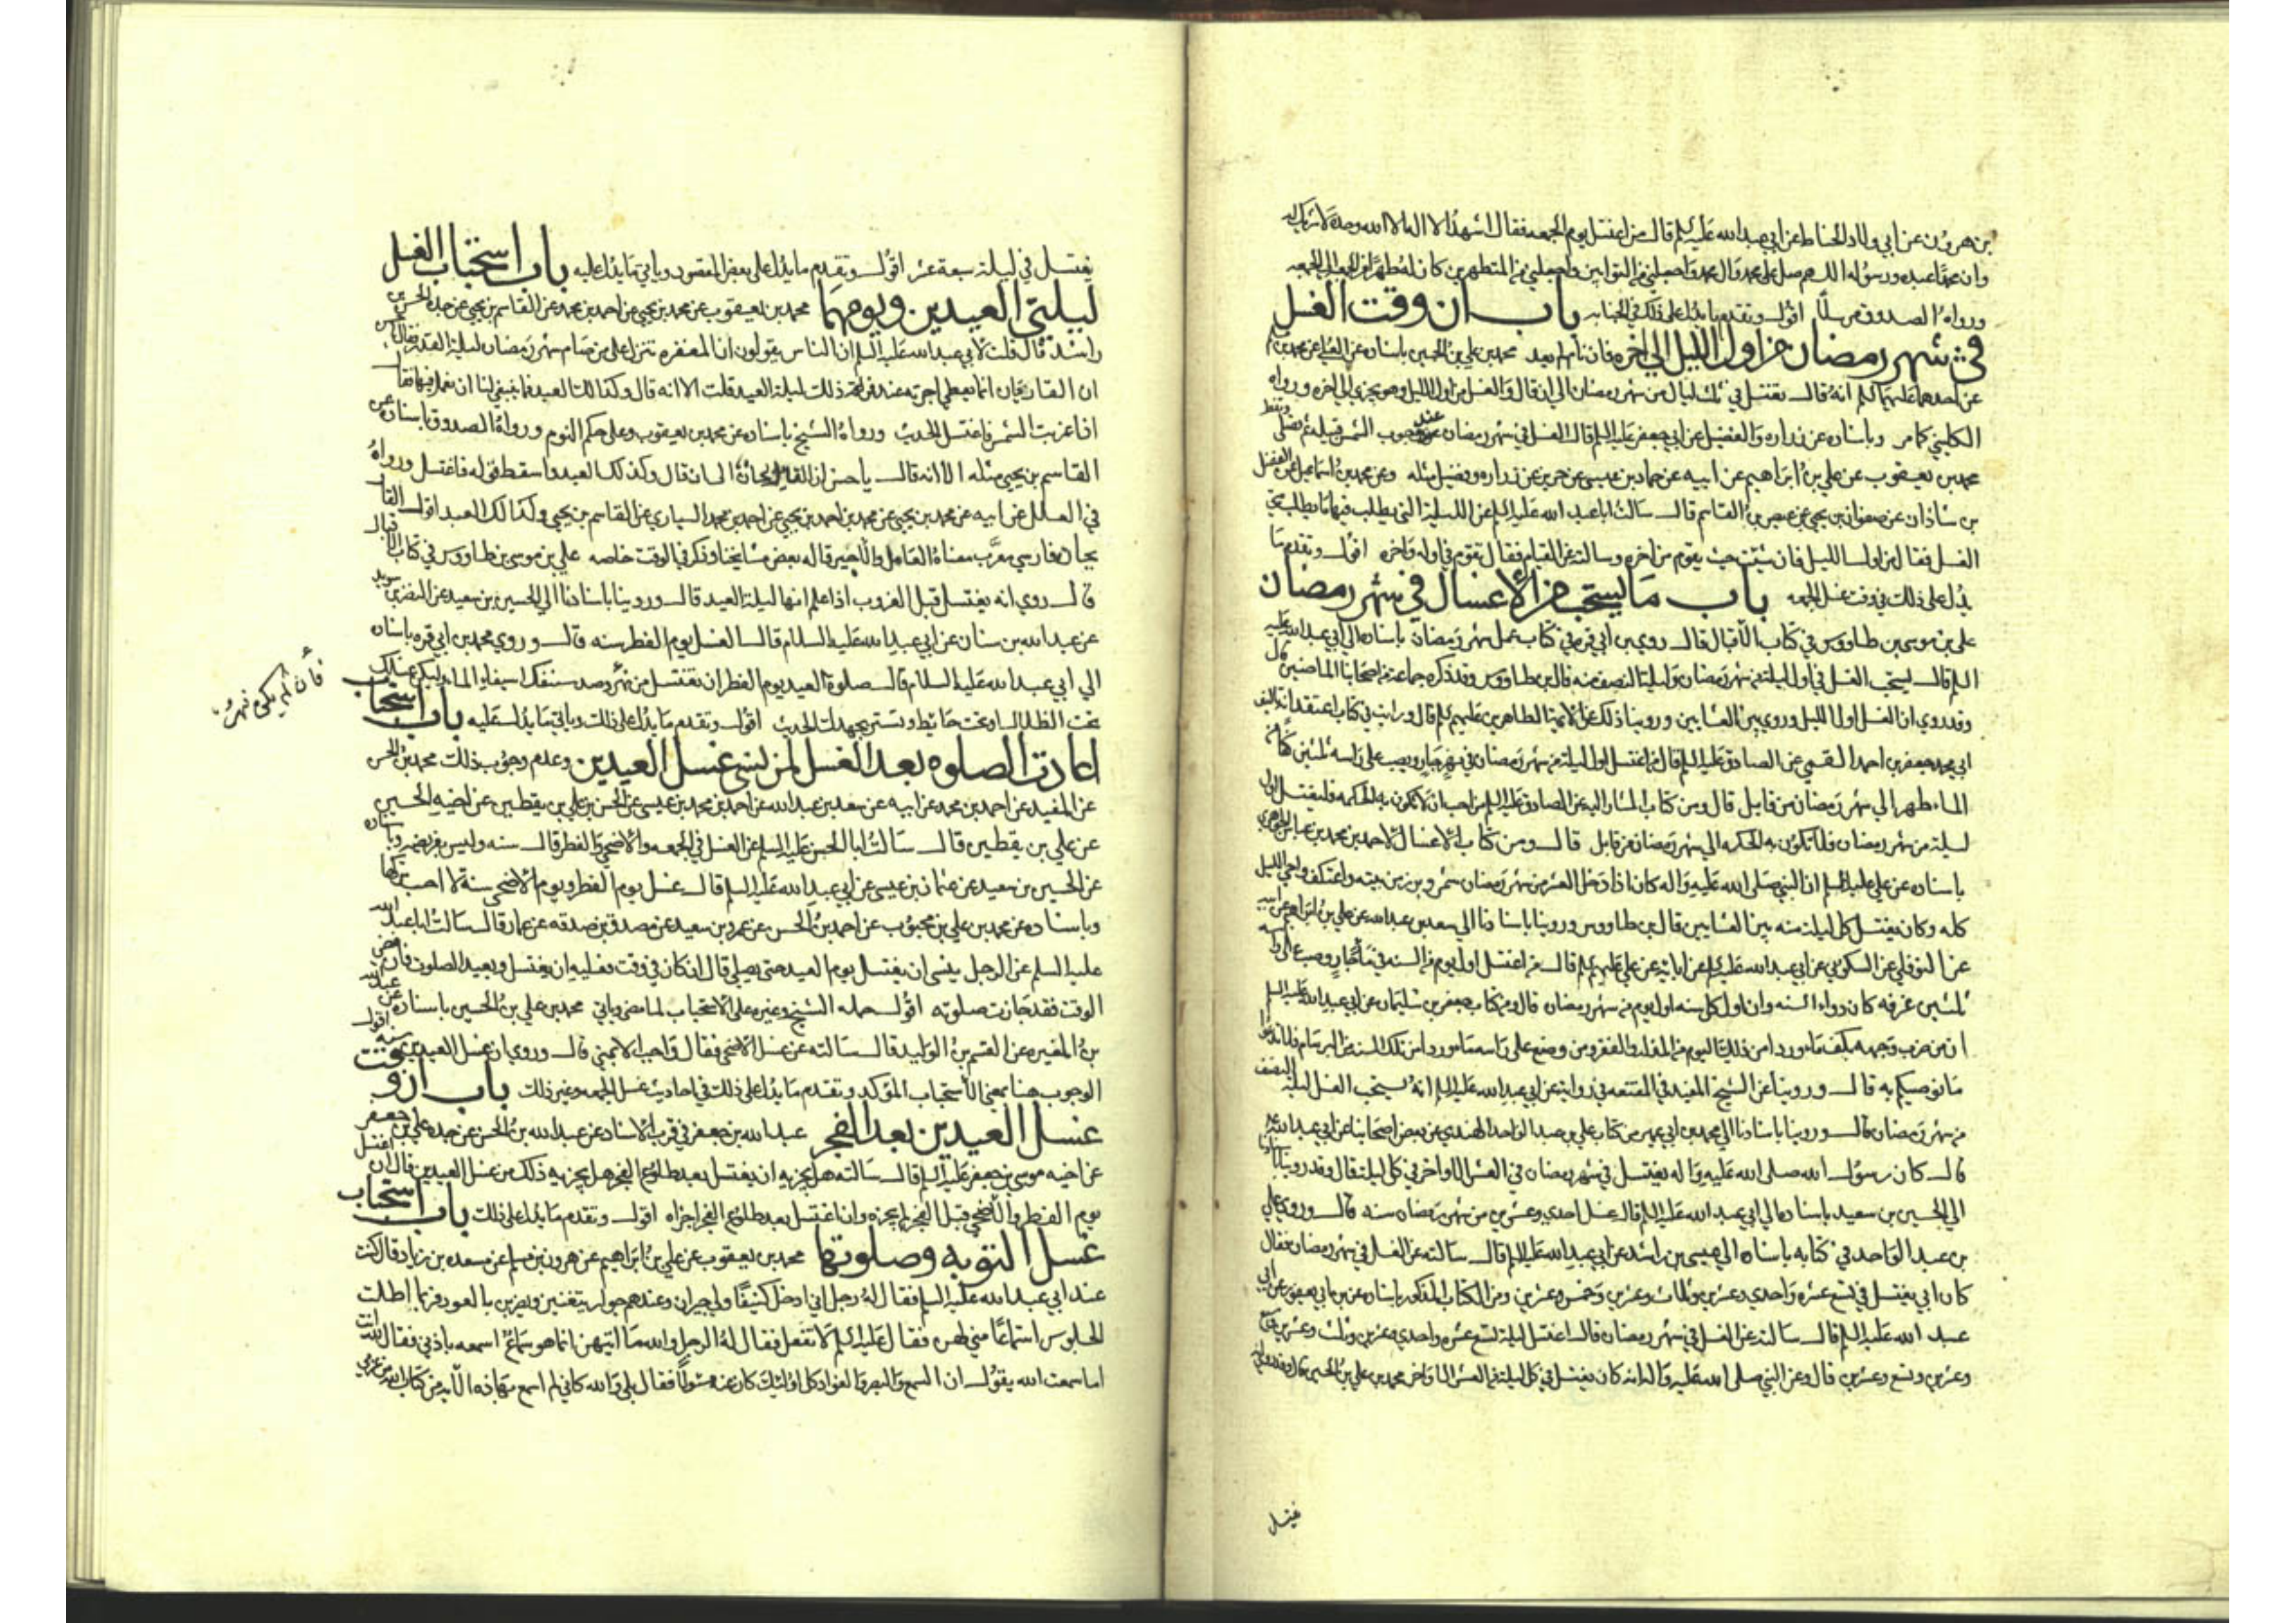 بن هرون عن ابي ولاد الحناط عن ابي عبد الله عليه السلم قال من اغتسل يوم الجمعه فقال اشهد ان لا اله الا الله وحده لا شريك له
وان محمدا عبده ورسوله اللهم صل على محمد وال محمد واجعلني من التوابين واجعلني من المتطهرين كان له طهرا من الجمعه الى الجمعه
ورواه الصدوق مرسلا اقول وتقدم ما يدل على ذلك في الجنابه باب ان وقت الغسل
في شهر رمضان من اول الليل الى اخره فان نام لم يعد محمد بن علي بن الحسين باسناده عن العلا عن محمد بن مسلم
عن احدهما عليهما السلم انه قال يغتسل في ثلث ليال من شهر رمضان الى ان قال والغسل من اول الليل وهو يجزي الى اخره ورواه
الكليني كما مر وباسناده عن زراره والفضيل عن ابي جعفر عليه السلم قال الغسل في شهر رمضان عند وجوب الشمس قبيله ثم يصلي ويفطر
محمد بن يعقوب عن علي بن ابراهيم عن ابيه عن حماد بن عيسى عن حريز عن زراره وفضيل مثله وعن محمد بن اسماعيل عن الفضل
بن شاذان عن صفوان بن يحيى عن عيص بن القاسم قال سالت ابا عبد الله عليه السلم عن الليلة التي يطلب فيها ما يطلب متى
الغسل فقال من اول الليل فان شئت حيث يقوم من اخره وسالته عن القيام فقال تقوم في اوله واخره اقول وتقدم ما
يدل على ذلك في وقت غسل الجمعه باب ما يستحب من الاغسال في شهر رمضان
علي بن موسى بن طاووس في كتاب الاقبال قال روى بن ابي قره في كتاب عمل شهر رمضان باسناده الى ابي عبد الله عليه
السلم قال يستحب الغسل في اول ليلة من شهر رمضان وليلة النصف منه قال بن طاووس وقد ذكره جماعة من اصحابنا الماضين قال
وقد روي ان الغسل اول الليل وروي بين العشايين وروينا ذلك عن الائمة الطاهرين عليهم السلم قال ورايت في كتاب اعتقد انه تاليف
ابي محمد جعفر بن احمد القمي عن الصادق عليه السلم قال من اغتسل اول ليلة من شهر رمضان في نهر جار ويصب على راسه ثلثين كفا من
الماء طهر الى شهر رمضان من قابل قال ومن كتاب المشار اليه عن الصادق عليه السلم من احب ان لا تكون به الحكه فليغتسل اول
ليلة من شهر رمضان فلا تكون به الحكه الى شهر رمضان من قابل قال ومن كتاب الاغسال لاحمد بن محمد بن عياش الجوهري
باسناده عن علي عليه السلم ان النبي صلى الله عليه واله كان اذا دخل العشر من شهر رمضان شمر وبرز من بيته واعتكف واحيى الليل
كله وكان يغتسل كل ليلة منه بين العشايين قال بن طاووس وروينا باسنادنا الى سعد بن عبد الله عن علي بن ابراهيم عن ابيه
عن النوفلي عن السكوني عن ابي عبد الله عليه السلم عن ابائه عن علي عليهم السلم قال من اغتسل اول يوم من السنه في ماء جار وصب على راسه
ثلثين غرفه كان دواء السنه وان اول كل سنه اول يوم من شهر رمضان قال ومن كتاب جعفر بن سليمان عن ابي عبد الله عليه السلم
ان من ضرب وجهه بكف ماء ورد امن ذلك اليوم من المذله والفقر ومن وضع على راسه ماء ورد امن تلك السنه من البرسام فلا تدعوا
ما نوصيكم به قال وروينا عن الشيخ المفيد في المقنعه في رواية عن ابي عبد الله عليه السلم انه يستحب الغسل ليلة النصف
من شهر رمضان قال وروينا باسنادنا الى محمد بن ابي عمير من كتاب علي بن عبد الواحد النهدي عن بعض اصحابنا عن ابي عبد الله عليه
قال كان رسول الله صلى الله عليه واله يغتسل في شهر رمضان في العشر الاواخر في كل ليلة قال وقد روينا باسنادنا
الى الحسين بن سعيد باسناده الى ابي عبد الله عليه السلم قال غسل احدى وعشرين من شهر رمضان سنه قال وروى علي
بن عبد الواحد في كتابه باسناده الى عيسى بن راشد عن ابي عبد الله عليه السلم قال سالته عن الغسل في شهر رمضان فقال
كان ابي يغتسل في تسع عشره واحدى وعشرين وثلاث وعشرين وخمس وعشرين ومن الكتاب المذكور باسناده عن بن ابي يعفور عن ابي
عبد الله عليه السلم قال سالته عن الغسل في شهر رمضان فقال اغتسل ليلة تسع عشره واحدى وعشرين وثلث وعشرين وسبع
وعشرين وتسع وعشرين قال وعن النبي صلى الله عليه واله انه كان يغتسل في كل ليلة من العشر الاواخر محمد بن علي بن الحسين قال وقد روي انه
يغتسل
يغتسل في ليلة سبعة عشر اقول وتقدم ما يدل على بعض المقصود وياتي ما يدل عليه باب استحباب الغسل
ليلتي العيدين ويومهما محمد بن يعقوب عن محمد بن يحيى عن احمد بن محمد عن القاسم بن يحيى عن جده الحسن بن
راشد قال قلت لابي عبد الله عليه السلم ان الناس يقولون ان المغفره تنزل على من صام شهر رمضان ليلة القدر فقال يا حسن
ان القاريجان انما يعطى اجرته عند فراغه ذلك ليلة العيد قلت الا انه قال وكذالك العيد فما ينبغي لنا ان نعمل فيها فقال
اذا غربت الشمس فاغتسل الحديث ورواه الشيخ باسناده عن محمد بن يعقوب وعلى حكم النوم ورواه الصدوق باسناده عن
القاسم بن يحيى مثله الا انه قال يا حسن ان القاريجان الى ان قال وكذلك العيد واسقط قوله فاغتسل ورواه
في العلل عن ابيه عن محمد بن يحيى عن محمد بن احمد بن يحيى عن احمد بن محمد السياري عن القاسم بن يحيى وكذالك العيد اقول القار
يجان فارسي معرب معناه العامل والاجير قاله بعض مشايخنا وذكر في الوقت خاصه علي بن موسى بن طاووس في كتاب الاقبال
قال روي انه يغتسل قبل الغروب اذا علم انها ليلة العيد قال وروينا باسنادنا الى الحسين بن سعيد عن النضر بن سويد
عن عبد الله بن سنان عن ابي عبد الله عليه السلام قال الغسل يوم الفطر سنه قال وروى محمد بن ابي قره باسناده
الى ابي عبد الله عليه السلام قال صلوة العيد يوم الفطر ان تغتسل من نهر اسيفاء الماء وليكن غسلك
فان لم يكن نهر
تحت الظلال او تحت حائط وتستر بجهدك الحديث اقول وتقدم ما يدل على ذلك وياتي ما يدل عليه باب استحباب
اعادة الصلوه بعد الغسل لمن نسي غسل العيدين وعدم وجوب ذلك محمد بن الحسن
عن المفيد عن احمد بن محمد عن ابيه عن سعد بن عبد الله عن احمد بن محمد بن عيسى عن الحسن بن علي بن يقطين عن اخيه الحسين
عن علي بن يقطين قال سالت ابا الحسن عليه السلم عن الغسل في الجمعه والاضحى والفطر قال سنه وليس بفريضه وباسناده
عن الحسين بن سعيد عن عثمان بن عيسى عن ابي عبد الله عليه السلم قال غسل يوم الفطر ويوم الاضحى سنة لا احب تركها
وباسناده عن محمد بن علي بن محبوب عن احمد بن الحسن عن عمرو بن سعيد عن مصدق بن صدقه عن عمار قال سالت ابا عبد الله
عليه السلم عن الرجل ينسى ان يغتسل يوم العيد حتى يصلي قال ان كان في وقت فعليه ان يغتسل ويعيد الصلوة فان مضى
الوقت فقد جازت صلوته اقول حمله الشيخ وغيره على الاستحباب لما مضى وياتي محمد بن علي بن الحسين باسناده عن عبد الله
بن المغيره عن القسم بن الوليد قال سالته عن غسل الاضحى فقال واجب الا بمنى قال وروي ان غسل العيدين سنه اقول
الوجوب هنا بمعنى الاستحباب المؤكد وتقدم ما يدل على ذلك في احاديث غسل الجمعه وغير ذلك باب ان وقت
غسل العيدين بعد الفجر عبد الله بن جعفر في قرب الاسناد عن عبد الله بن الحسن عن جده علي بن جعفر
عن اخيه موسى بن جعفر عليه السلم قال سالته هل يجزيه ان يغتسل بعد طلوع الفجر هل يجزيه ذلك من غسل العيدين قال ان اغتسل
يوم الفطر والاضحى قبل الفجر لم يجزه وان اغتسل بعد طلوع الفجر اجزاه اقول وتقدم ما يدل على ذلك باب استحباب
غسل التوبه وصلوتها محمد بن يعقوب عن علي بن ابراهيم عن هرون بن مسلم عن مسعده بن زياد قال كنت
عند ابي عبد الله عليه السلم فقال له رجل اني ادخل كنيفا ولي جيران وعندهم جوار يتغنين ويضربن بالعود فربما اطلت
الجلوس استماعا مني لهن فقال عليه السلم لا تفعل فقال له الرجل والله ما اتيهن انما هو سماع اسمعه باذني فقال لله انت
اما سمعت الله يقول ان السمع والبصر والفواد كل اولئك كان عنه مسئولا فقال بلى والله كاني لم اسمع بهاذه الايه من كتاب الله من عربي